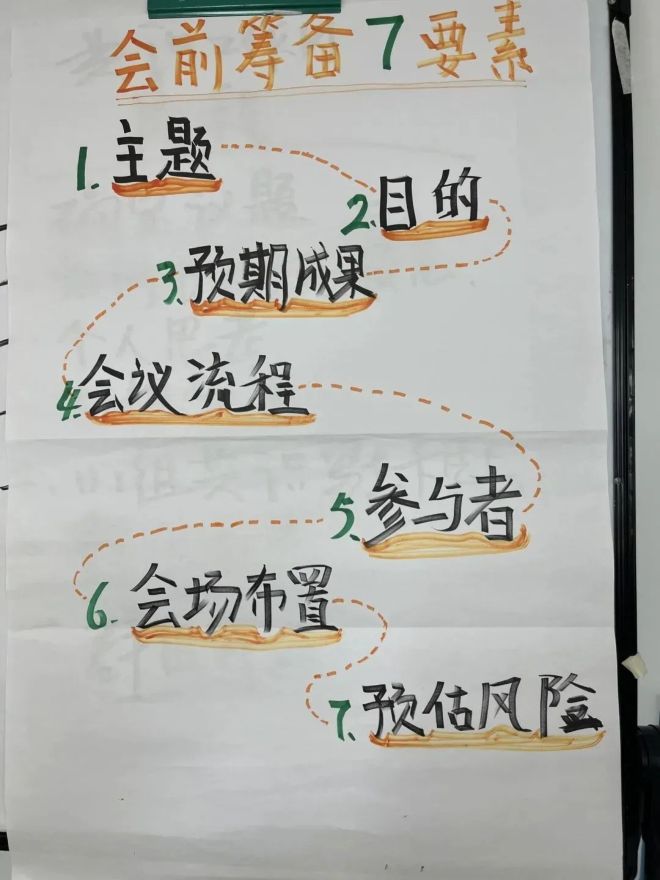 会前筹备7要素
1.主题
2.目的
3.预期成果
4.会议流程
5.参与者
6.会场布置
7.预估风险